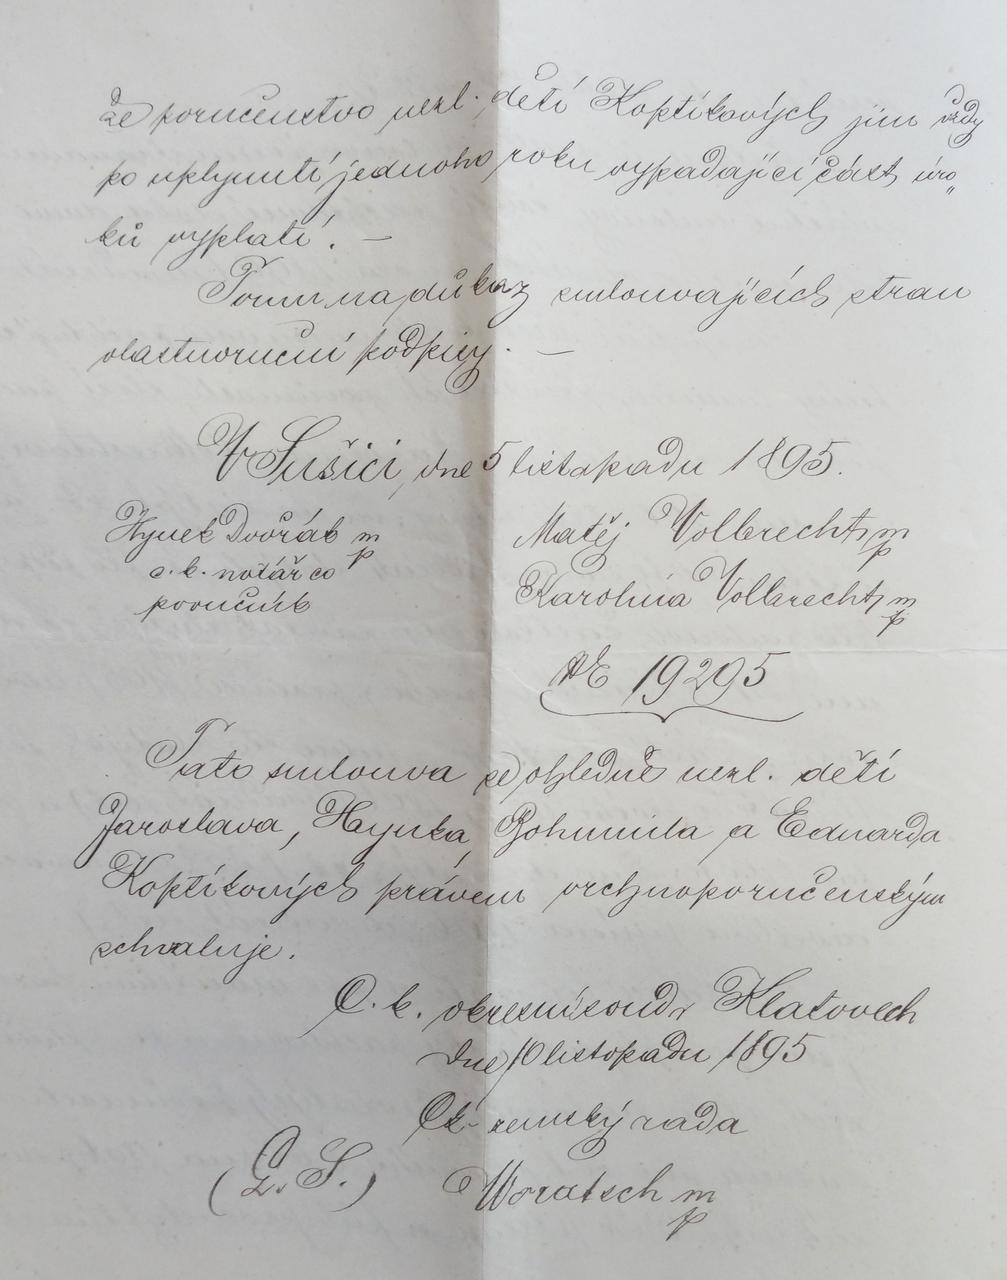 že poručenstvo nezl. dětí Koptíkových jim vždy
po uplynutí jednoho roku vypadající část úro„
ků vyplatí. —
Tomu na důkaz smlouvajících stran
vlastnoruční podpisy. —
V Sušici, dne 5 listopadu 1895.
Hynek Dvořák mp
c. k. notář co
poručník
Matěj Vollbrecht mp
Karolina Vollbrecht mp
NE 19295
Tato smlouva se ohledně nezl. dětí
Jaroslava, Hynka, Bohumila a Eduarda
Koptíkových právem vrchnoporučenským
schvaluje.
C. k. okresní soud v Klatovech
dne 10 listopadu 1895
C. k. zemský rada
(L. S.) Woratsch mp